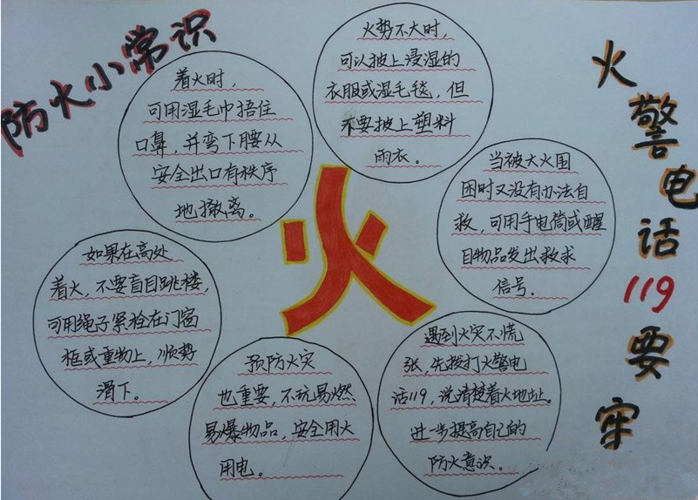 防火小常识
着火时，
可用湿毛巾捂住
口鼻，并弯下腰从
安全出口有秩序
地撤离。
火势不大时，
可以披上浸湿的
衣服或湿毛毯，但
不要披上塑料
雨衣。
火警电话119要牢
当被大火围
困时又没有办法自
救，可用手电筒或醒
目物品发出救求
信号。
火
如果在高处
着火，不要盲目跳楼，
可用绳子紧栓在门窗
框或重物上，顺势
滑下。
预防火灾
也重要，不玩易燃
易爆物品，安全用火
用电。
遇到火灾不慌
张，先拨打火警电
话119，说清楚着火地址。
进步提高自己的
防火意识。